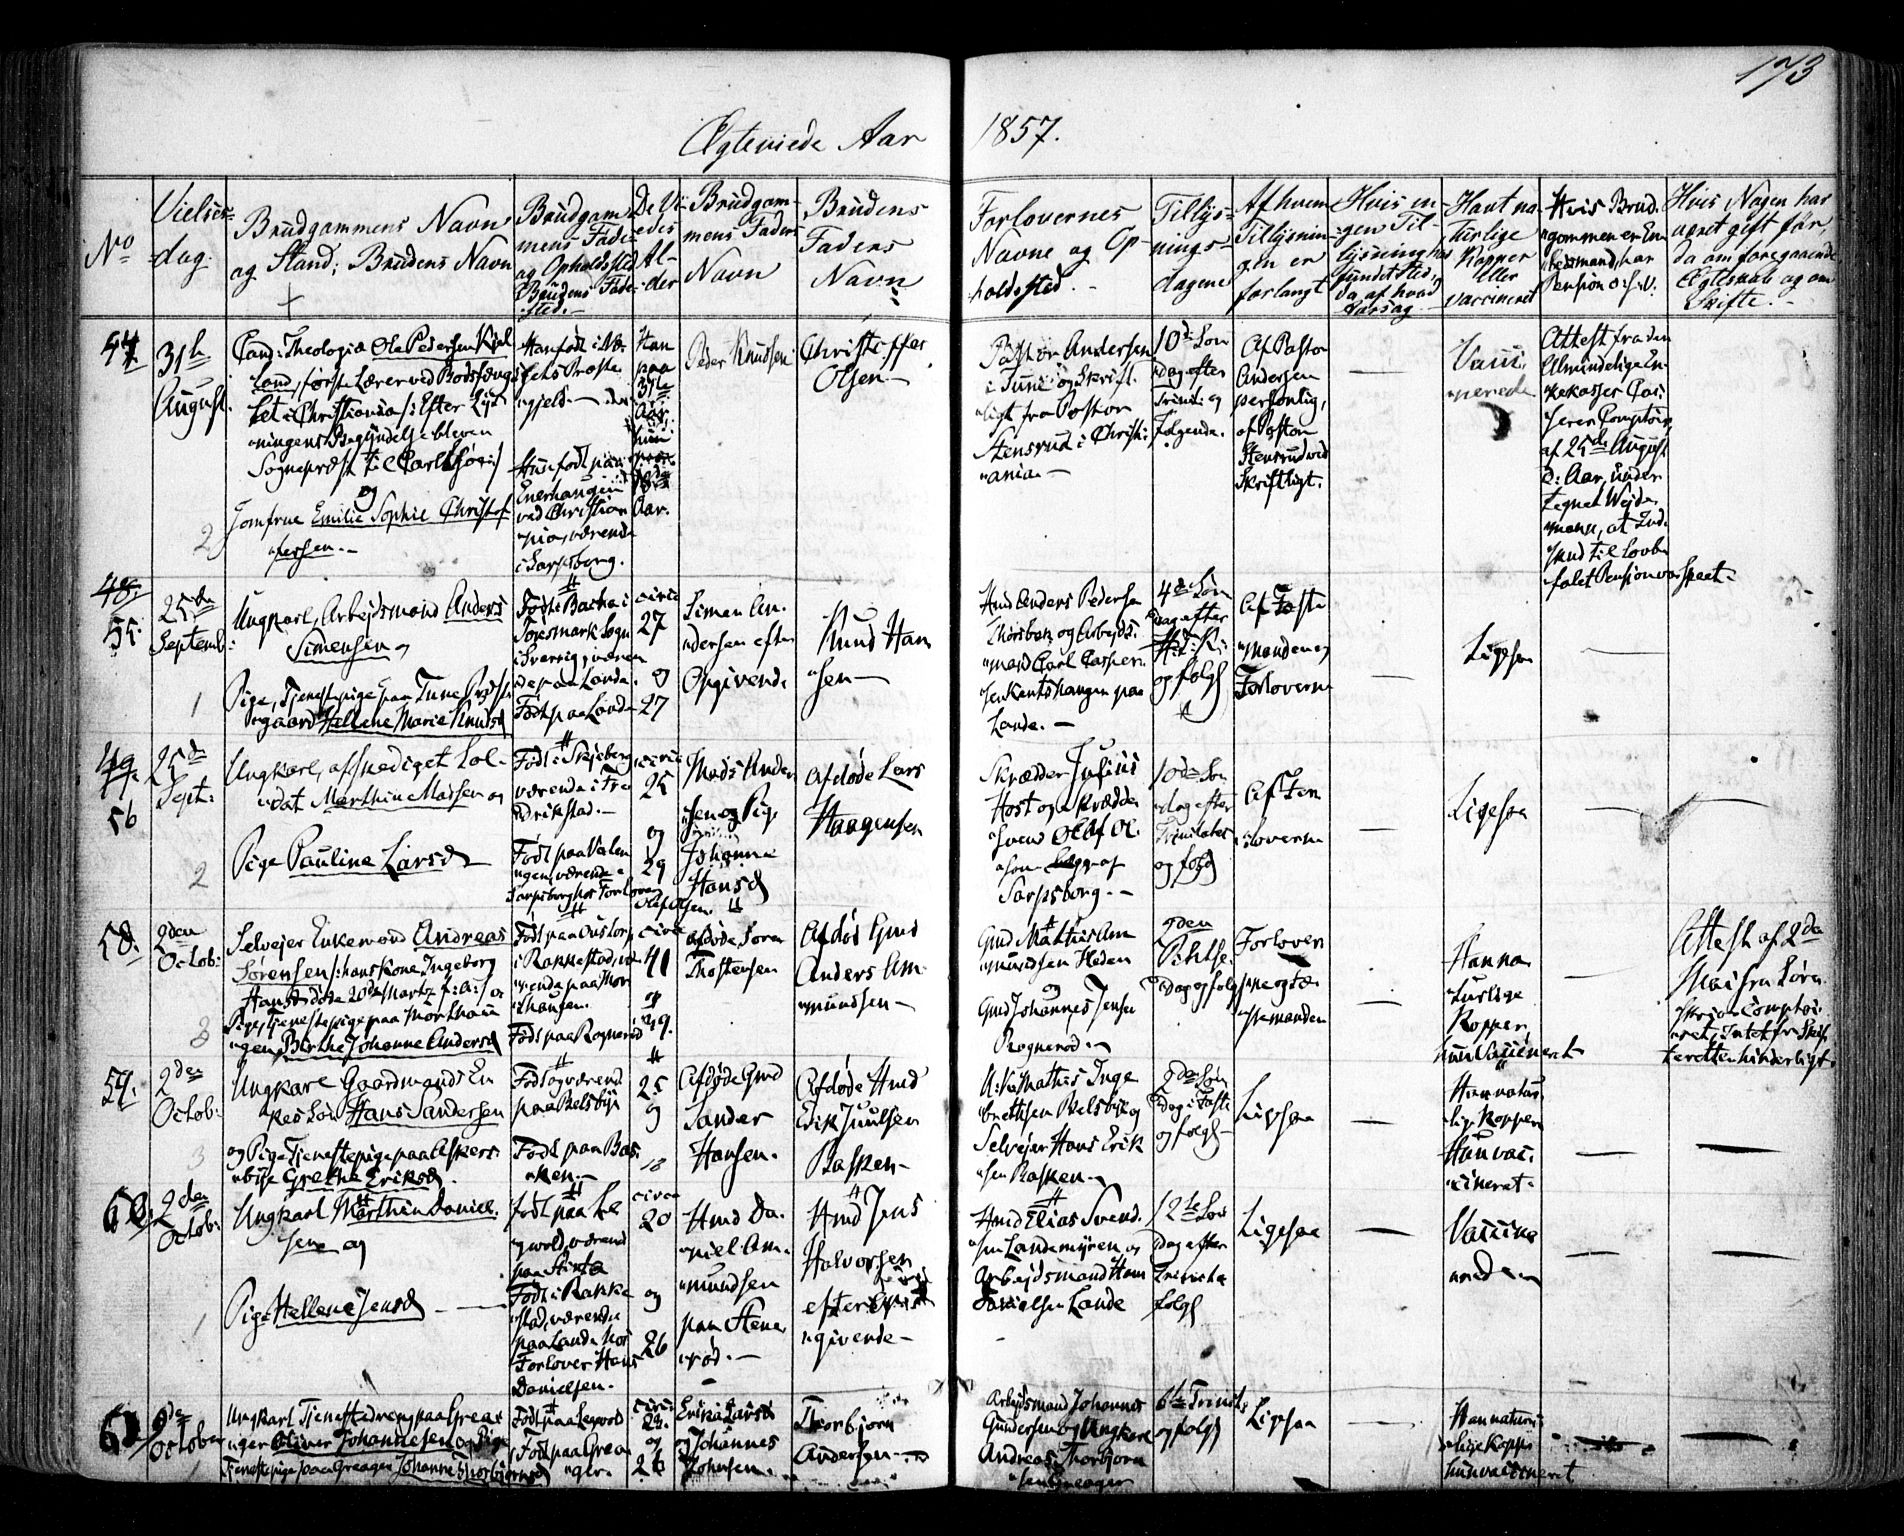 173
Ægteviede Aar 1857.
No
Vielses-
dag.
Brudgammens Navn
og Stand; Brudens Navn
Brudgam-
mens Føde
og Opholdssted
Brudens Føde-
sted.
De Vi-
edes
Al-
der
Brudgam-
mens Faders
Navn
Brudens
Faders
Navn
Forlovernes
Navne og Op-
holdssted.
Tillys-
nings-
dagene
Af hvem
Tillysnin-
gen er
forlangt
Hvis in-
gen Til-
lysning har
fundet Sted,
da af hvad
Aarsag
Havt na-
turlige
Kopper
eller
vaccineret
Hvis Brud-
gommen er En-
kemand, har
Pension o: s: v:
Hvis Nogen har
været gift før,
da om foregaaende
Ægteskab og om
Skifte.
54
31te
August.
Cand: Theologia Ole Pedersen
Land, første Lærer ved Bodsfæng-
let i Christiania /: efter Lys-
ningens Begyndelse bleven
Sognepræst til
og
Jomfrue Emilie Sophie Christof-
fersen.
2
Han født i
Præste-
gjeld.
Hun født paa
Enerhaugen
ved Christian-
nia, værende
i Sarpsborg.
Han
paa
Aar.
hun
Aar.
Peder Knudsen
Christoffer
Olsen
Pastor Andersen
i Tune og Skrift-
ligt fra Pastor
Stensrud i Christi-
ania
10de Søn-
dag efter
Trinit: og
følgende.
Af Pastor
Andersen
personlig,
af Pastor
Stensrud ved
Skriftligt.
Vacci-
nerede
Attest fra den
Almindelige En-
kekasses Cas-
serer Comptoir
af 25de August
d: Aar, under-
tegnet
mann, at Ind-
skud til lovbe-
falet Pension
48.
55.
25de
Septemb:
1
Ungkarl, Arbejdsmand Anders
Simensen og
Pige, Tjenestepige paa Tune Præste-
gaard Hellene Marie Knudsd
Født i
Sogn
i Sverrig, væren-
de paa Lande.
Født paa Lande
circa
27
og
27
Simen An-
dersen efter
Opgivende
Knud Han-
sen
Hmd Anders Pedersen
og Arbejds-
mand Carl Casper-
sen paa
Lande.
4de Søn-
dag efter
H: 3: K:
og følg
Af Fæste-
manden og
Forloverne
Ligesaa
49.
56
25de
Sept:
2
Ungkarl, afskediget Sol-
dat Marthin Madsen og
Pige Pauline Larsd
Født i Skjeberg
værende i Fre-
drikstad.
Født paa Valen
værende i
Sarpsborg hos Forlover
Olaf Olsen.
circa
25
og
29
Mads Ander-
sen og Pige
Johanne
Hansd
Afdøde Lars
Haagensen
Skrædder Julius
Høst og Skrædder-
svend Olaf Ol-
sen af
Sarpsborg.
10de Søn-
dag efter
Trinitatis
og følg
Af For-
loverne
Ligesaa
58.
2den
Octob:
Selvejer Enkemand Andreas
Sørensen /: hans Kone Ingeborg
Hansd døde 20de Martz og
Pige, Tjenestepige paa Morthau-
gen, Birthe Johanne Andersd
Født paa
i Rakkestad, væ-
rende paa Mor-
thaugen.
Født paa Rognerød
circa
41
og
29.
Afdøde Søren
Thostensen
Afdøde Gmd
Anders Am-
mundsen
Gmd Mathis Am-
mundsen Heden
og
Gmd Johannes Jensen
Rognerød.
2den
Pintse-
dag og følg
Forlover-
ne og Fæ-
stemanden
Han na-
turlige
Kopper,
hun Vaccineret
Attest af 2de
Mai fra Sørn-
skriver Comptoi-
ret, Intet fra Skif-
teretten hinderligt.
59.
2den
Octob:
3
Ungkarl Gaardmands En-
kes Søn Hans Sandersen
og Pige Tjenestepige paa Askers-
bye Grethe Eriksd.
Født og værend
paa Belsbye
Født paa Bas-
ken.
25
og
18
Afdøde Gmd
Sander
Hansen.
Afdøde Hmd
Erik Juulsen
Basken
Mathis Inge-
brettsen Belsbye og
Selvejer Hans Erik-
sen Basken
2den Søn-
dag i Faste
og følg
Ligesaa
Han natur-
lige Kopper
Hun vac-
cineret.
60.
2den
Octob:
1
Ungkarl Marthin Daniel-
sen og
Pige Hellene Jensd
Født paa
værend
paa
Født i Rakke-
stad, værende
paa Lande hos
Forlover Hans
Danielsen.
circa
20
og
26
Hmd Da-
niel Am-
mundsen
paa Stene-
rød.
Hmd Jens
Halvorsen
efter Op-
givende
Hmd Elias Svend-
sen Landemyren og
Arbejdsmand Hans
Danielsen Lande
12te Søn-
dag efter
Trinita
følg
Ligesaa
Vaccine-
rede
61
2de
October
1
Ungkarl Tjenestedreng paa Greaa-
ger Oliver Johannesen og Pige
Tjenestepige paa Greager Johanne Thorbjørnsd
Født paa
Født paa Greaa-
ger.
circa
24.
og
26
Erika Larsd
og Johannes
Johnsen.
Thorbjørn
Andersen
Arbejdsmand Johannes
Gundersen og Ungkarl
Andreas Thorbjørn-
sen Greager
6te Trinits
og følg
Ligesaa
Han natur-
lige Kopper
hun vaccineret